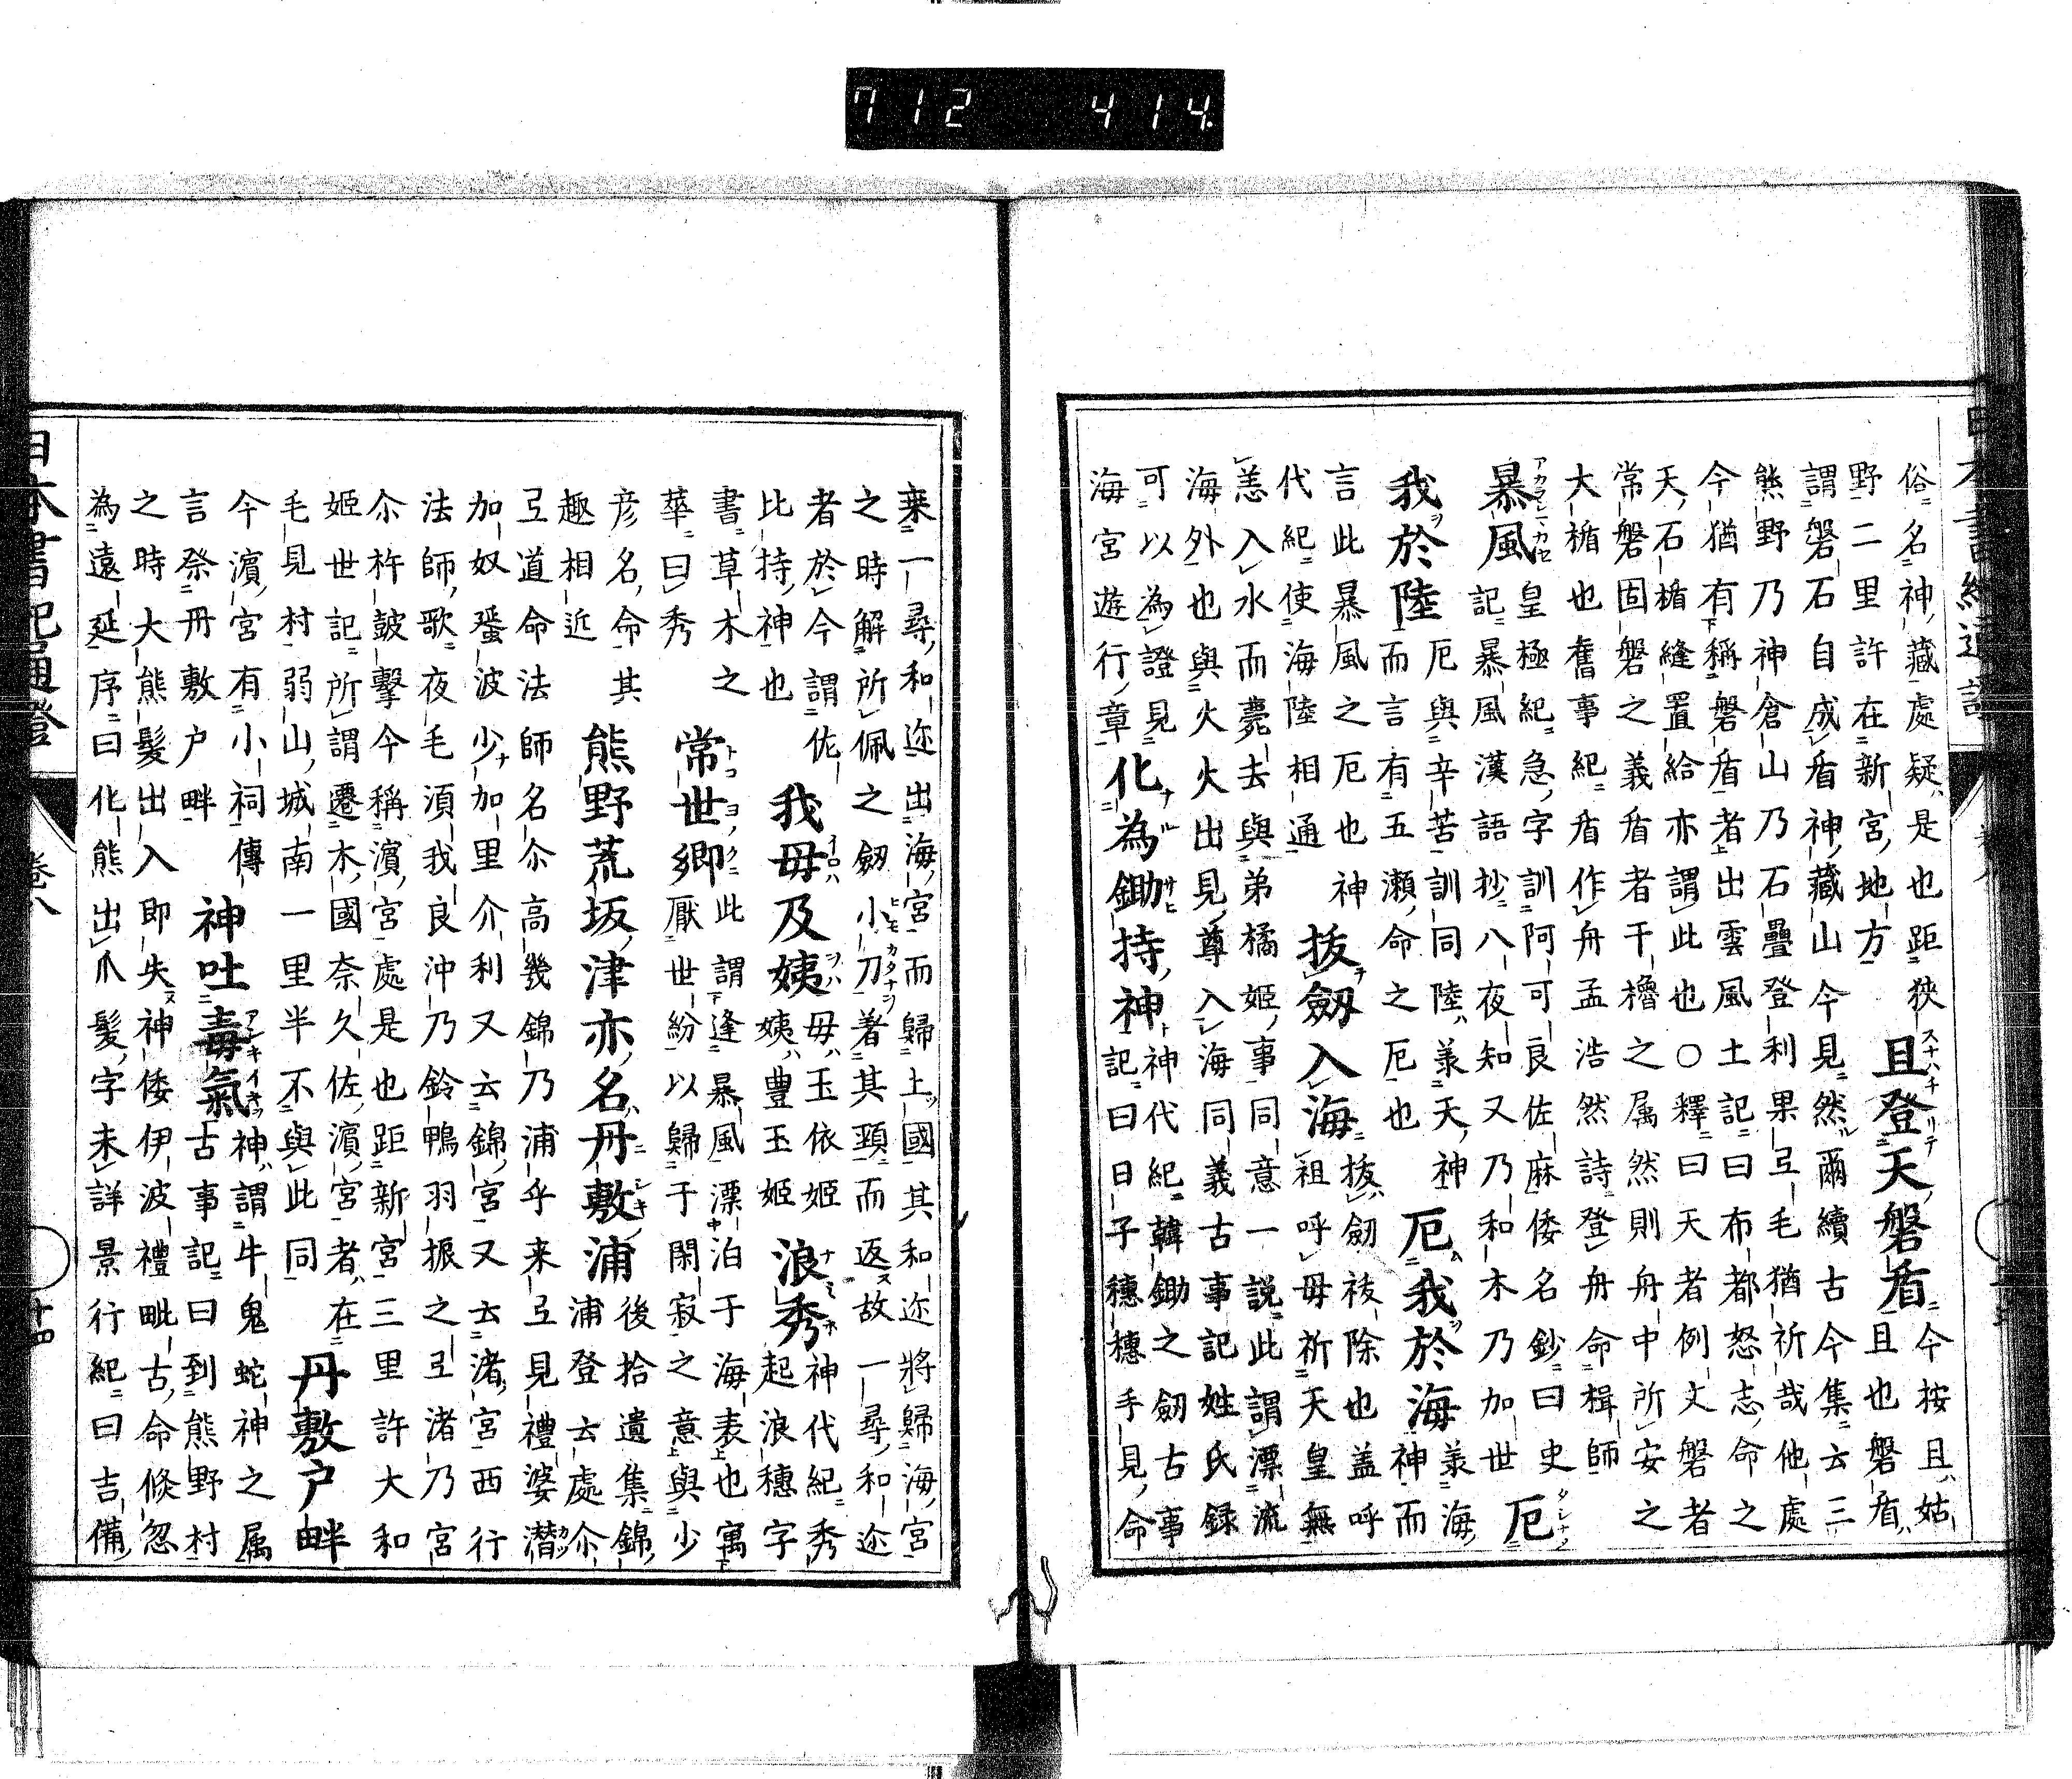 俗名神藏處疑是也距狹
野二里許在新宮地方
且登天磐盾
今按且姑
且也磐盾
謂磐石自成盾神藏山今見然爾續古今集云三
熊野乃神倉山乃石疊登利果弖毛猶祈哉他處
今猶有稱磐盾者出雲風土記曰布都怒志命之
天石楯縫置給亦謂此也○釋曰天者例文磐者
常磐固磐之義盾者干櫓之属然則舟中所安之
大楯也舊事紀盾作舟孟浩然詩登舟命楫師
暴風
皇極紀急字訓阿可良佐麻倭名鈔曰史
記暴風漢語抄八夜知又乃和木乃加世
厄
我於陸
厄與辛苦訓同陸羕天神
而言有五瀬命之厄也
厄我於海
羕海
神而
言此暴風之厄也神
代紀使海陸相通
拔劒入海
拔劒祓除也盖呼
祖呼母祈天皇無
恙入水而薨去與弟橘姫事同意一説此謂漂流
海外也與火火出見尊入海同義古事記姓氏録
可以為證見
海宮遊行章
化為鋤持神
神代紀韓鋤之劒古事
記曰日子穗穗手見命
来一尋和迩出海宮而歸土國其和迩將歸海宮
之時解所佩之劒小刀著其頸而返故一尋和迩
者於今謂佐
比持神也
我毋及姨
毋玉依姫
姨豊玉姫
浪秀
神代紀秀
起浪穗字
書草木之
華曰秀
常世郷
此謂逢暴風漂泊于海表也寓
厭世紛以歸于閑寂之意與少
彦名命其
趣相近
熊野荒坂津亦名丹敷浦
後拾遺集錦
浦登云處尒
弖道命法師名尒高幾錦乃浦乎来弖見禮婆潜
加奴蜑波少加里介利又云錦宮又云渚宮西行
法師歌夜毛湏我良沖乃鈴鴨羽振之弖渚乃宮
尒杵皷擊今稱濱宮處是也距新宮三里許大和
姫世記所謂遷木國奈久佐濱宮者在
毛見村弱山城南一里半不與此同
丹敷户畔
今濱宮有小祠傳
言祭丹敷户畔
神吐毒氣
神謂牛鬼蛇神之属
古事記曰到熊野村
之時大熊髮出入即失神倭伊波禮毗古命倐忽
為遠延序曰化熊出爪髮字未詳景行紀曰吉備
日本書紀通證 卷八 十四
712 414